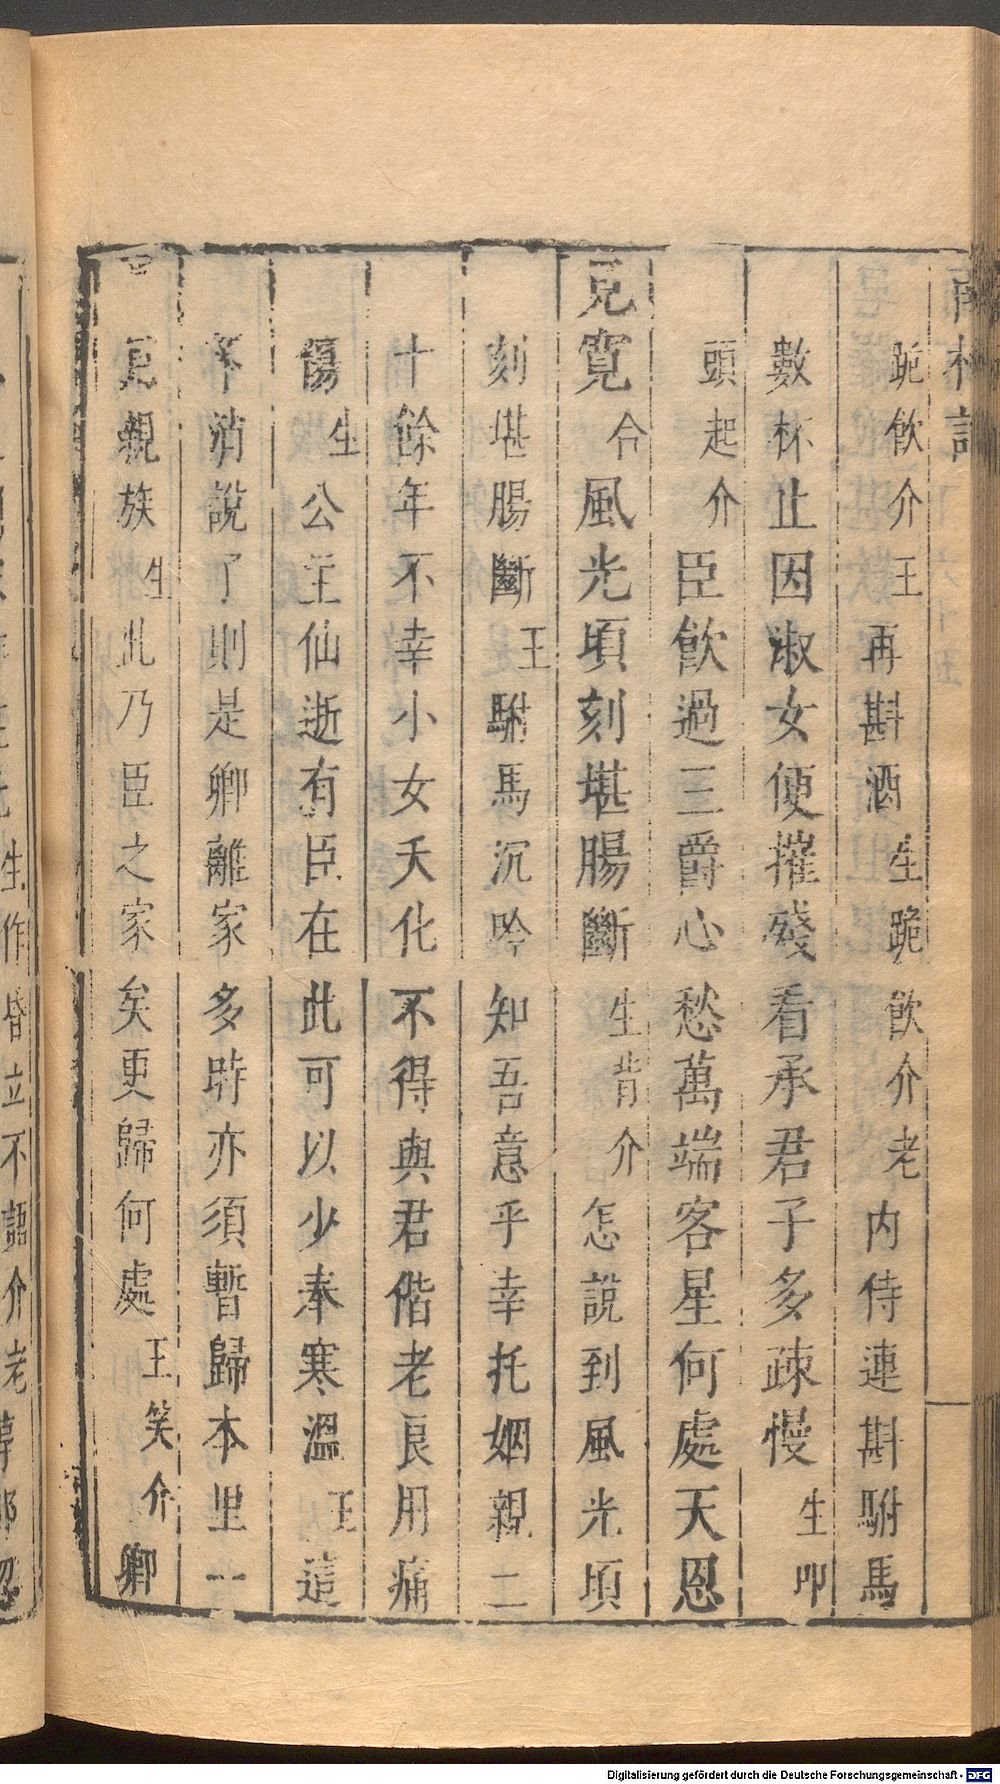 南柯記
跪飲介王再斟酒生跪飲介老内侍連斟駙馬
數杯止因淑女便摧殘看承君子多疎慢生叩
頭起介臣飲過三爵心愁萬端客星何處天恩
見寬合風光頃刻堪腸斷生背介怎說到風光頃
刻堪腸斷王駙馬沉吟知吾意乎幸托姻親二
十餘年不幸小女夭化不得與君偕老良用痛
傷生公主仙逝有臣在此可以少奉寒溫王這
不消說了則是卿離家多時亦須暫歸本里一
見親族生此乃臣之家矣更歸何處王笑介卿
生作昏立不語介老
Digitalisierung gefördert durch die Deutsche Forschungsgemeinschaft - DFG